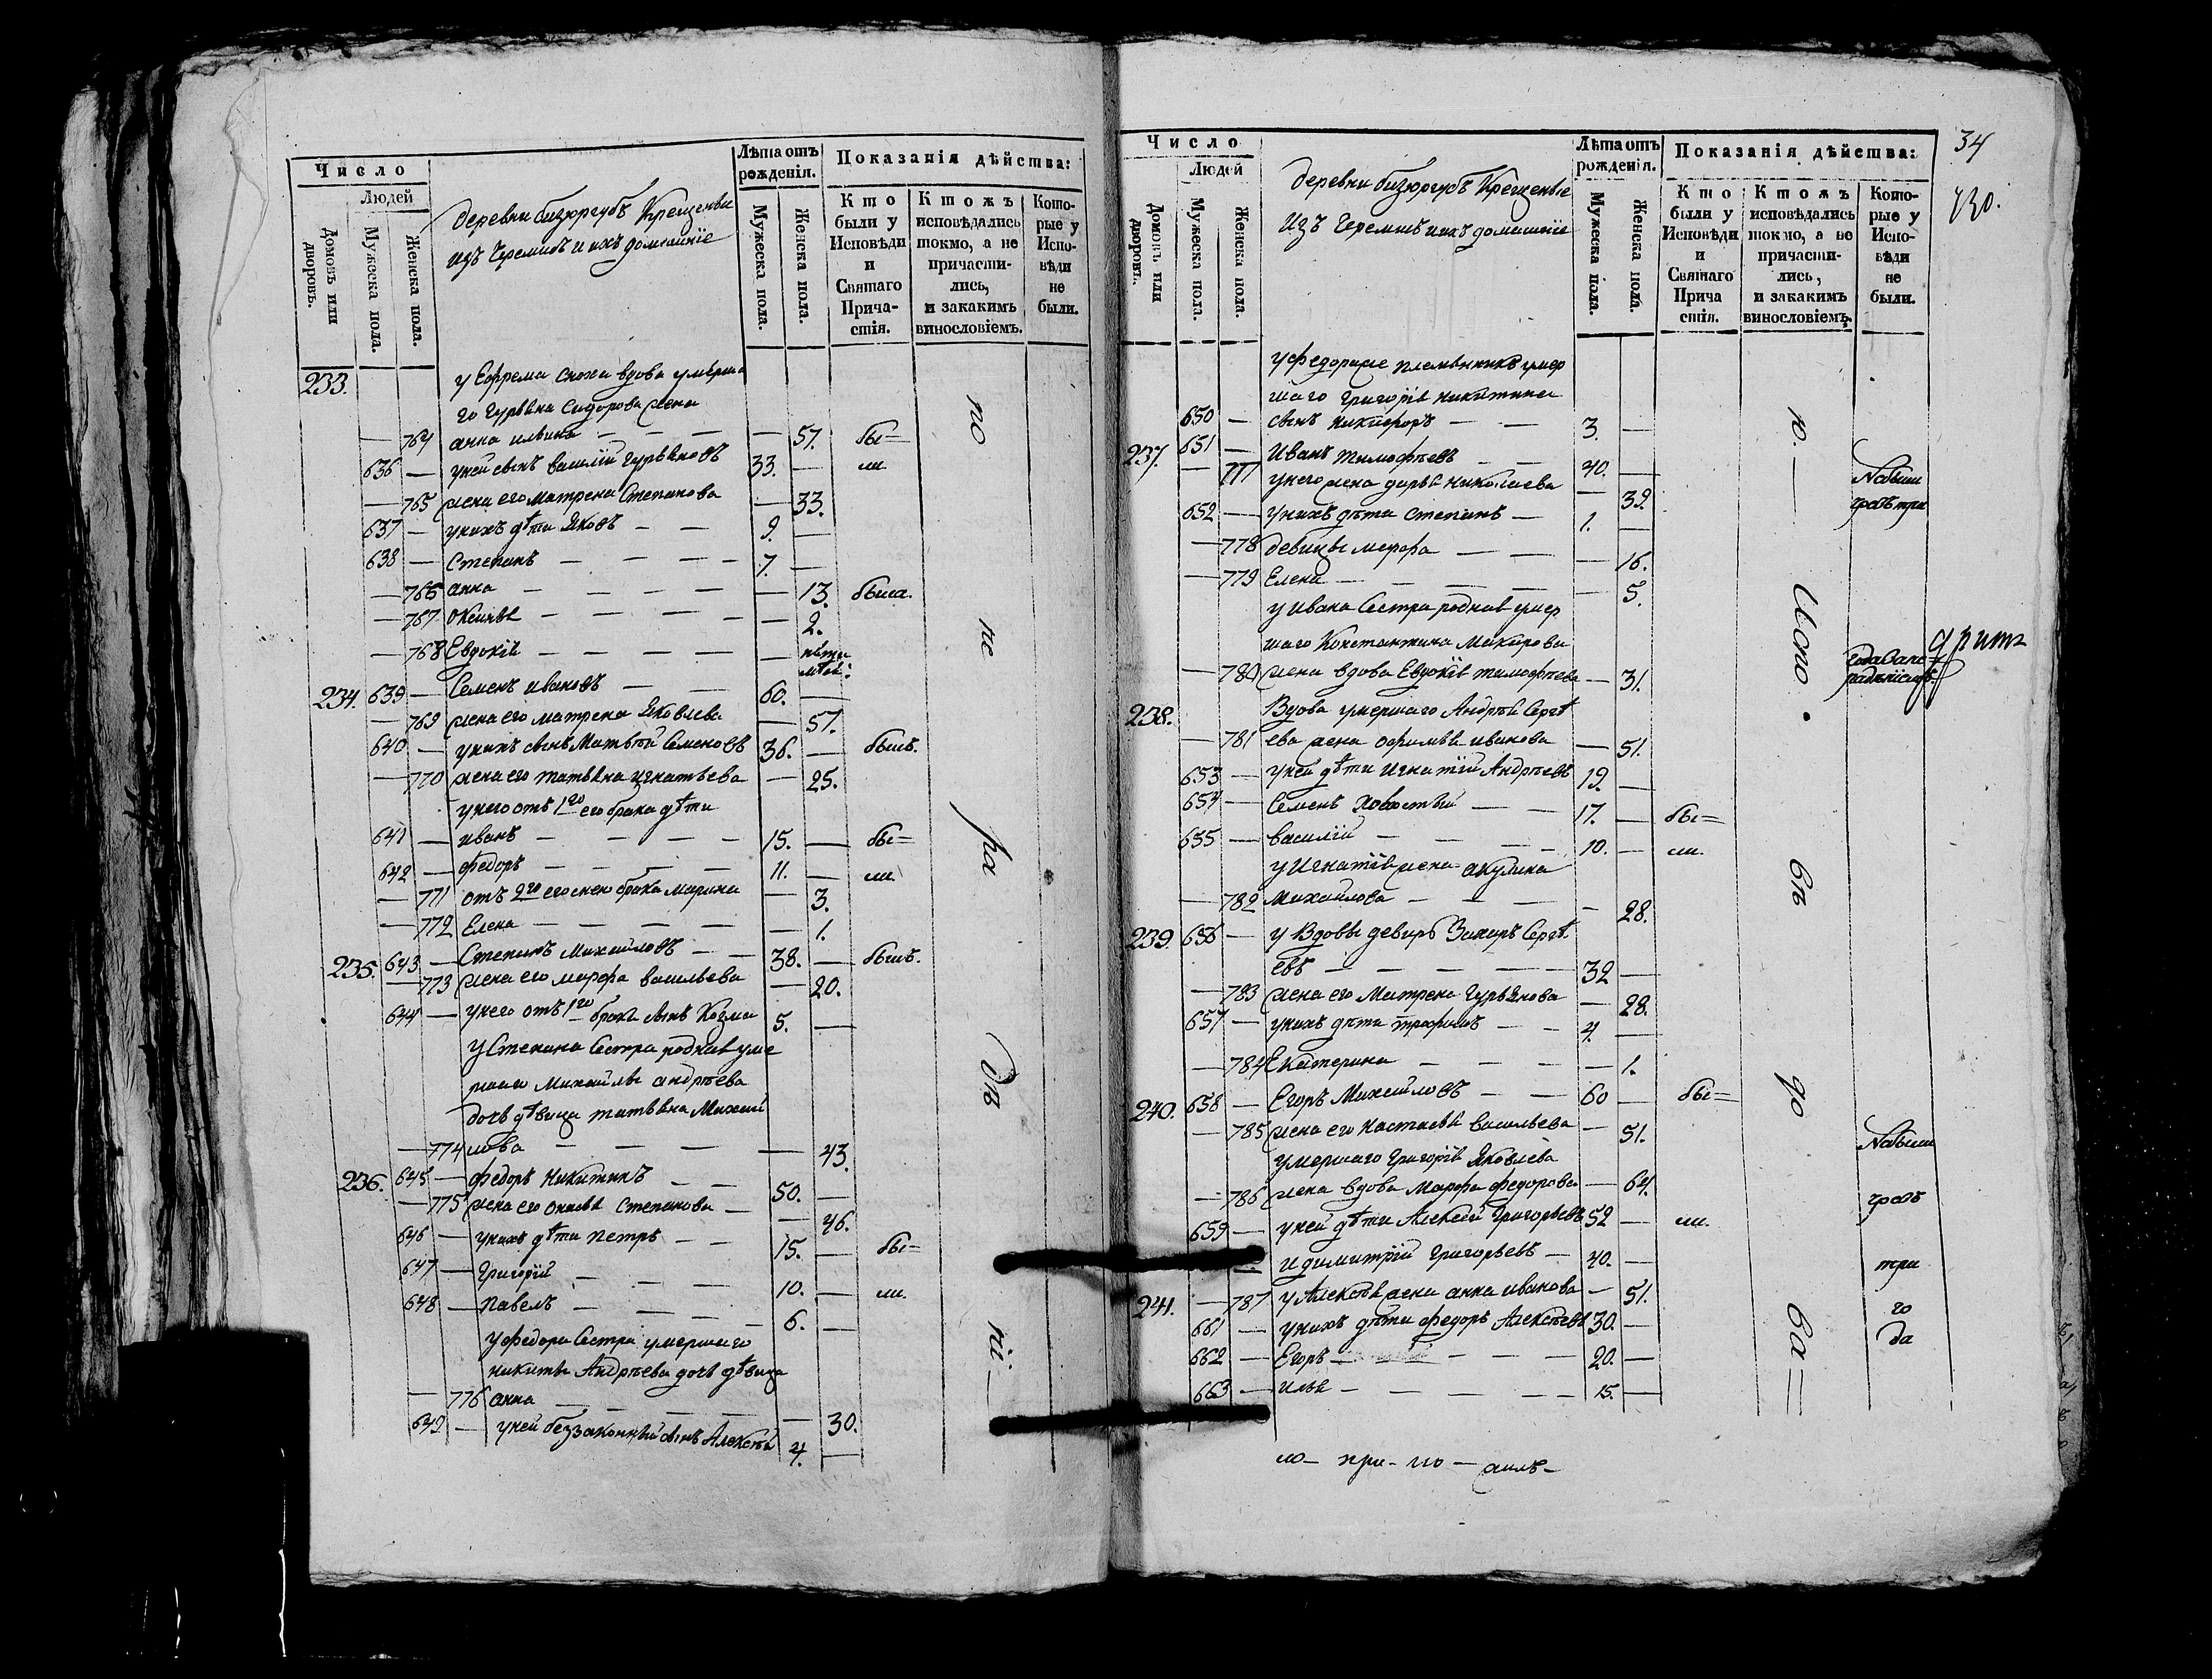 Число
Людей
Домовъ или дворовъ.
Мужеска пола.
Женска пола.
деревни бизюргубъ Крещеные
изъ Черемисъ и ихъ домашніе
Лѣта отъ рожденія.
Мужеска пола.
Женска пола.
Показанія дѣйства:
Кто были у Исповѣди и Святаго Причастія.
Ктожъ исповѣдались токмо, а не причастились, и закакимъ винословіемъ.
Которые у Исповѣди не были.
233. у Ефрема сноха вдова умерша
го Гурьяна Сидорова жена
— 764 анна ильина — — — — 57. бы=
636 — у ней сынъ василий Гурьяновъ 33. — ли.
— 765 жена его матрена Степанова — 33.
637 — у нихъ дѣти Яковъ — — 9. —
638 — Степанъ — — — 7. —
— 766 анна — — — — 13. была.
— 767 Оксинья — — — — 2.
— 768 Евдокія — — — —
234. 639 — Семенъ ивановъ — — 60. —
— 769 жена его матрена Яковлева — 57.
640 — у нихъ сынъ Матвѣй Семеновъ 36. — былъ.
— 770 жена его татьяна игнатьева — 25.
у него отъ 1го его брака дѣти
641 — иванъ — — — 15. — бы=
642 — федоръ — — — 11. — ли.
— 771 отъ 2го его брака марина — 3.
— 772 Елена — — — — 1.
235. 643 — Степанъ Михайловъ — — 38. — былъ.
— 773 жена его марфа васильева — 20.
644 — у него отъ 1го брака сынъ Козма 5. —
у Степана Сестра родная уме
ршаго Михайлы андрѣева
дочь дѣвица татьяна Михай
— 774 лова — — — — 43.
236. 645 — федоръ Никитинъ — — 50. —
— 775 жена его Степанова — — 46.
646 — у нихъ дѣти петръ — — 15. — бы=
647 — Григорій — — — 10. — ли.
648 — павелъ — — — 6. —
у федора Сестра умершаго
никиты Андрѣева дочь дѣвица
— 776 анна — — — — 30.
649 — у ней беззаконный сынъ Алексѣй 4. —
по
ра
ді
34
Число
Людей
Домовъ или дворовъ.
Мужеска пола.
Женска пола.
деревни бизюргубъ Крещеные
изъ Черемисъ и ихъ домашніе
Лѣта отъ рожденія.
Мужеска пола.
Женска пола.
Показанія дѣйства:
Кто были у Исповѣди и Святаго Причастія.
Ктожъ исповѣдались токмо, а не причастились, и закакимъ винословіемъ.
Которые у Исповѣди не были.
у федора же племянникъ умер
шаго григорія никитина
650 — сынъ никифоръ — — 3. —
237. 651 — Иванъ тимофѣевъ — — 40. —
— 777 у него жена дарья николаева — 39.
652 — у нихъ дѣти степанъ — 1. —
— 778 девицы марфа — — — 16.
— 779 Елена — — — — 5.
у ивана Сестра родная умер
шаго Константина макарова
— 780 жена вдова Евдокія тимофѣева — 31.
238. Вдова умершаго Андрѣя Сергѣ
— 781 ева жена офимья иванова — 51.
653 — у ней дѣти игнатій Андрѣевъ 19. —
654 — Семенъ холостый — — 17. — бы=
655 — василій — — — 10. — ли.
у игнатія жена акулина
— 782 михайлова — — — — 28.
239. 656 — у Вдовы деверь Захаръ Сергѣ
евъ — — — — 32 —
— 783 жена его Матрена Гурьянова — 28.
657 — у нихъ дѣти трофимъ — — 4. —
— 784 Екатерина — — — — 1.
240. 658 — Егоръ Михайловъ — — 60 — бы=
— 785 жена его настасья васильева — 51.
умершаго григорія Яковлева
— 786 жена вдова марфа федорова — 64.
659 — у ней дѣти Алексѣй григорьевъ 52 — ли.
и димитрій григорьевъ — 40. —
241. — 787 у Алексѣя жена анна иванова — 51.
661 — у нихъ дѣти федоръ Алексѣевъ 30. —
662 — Егоръ — — — 20. —
663 — илья — — — — 15. —
три
три
го
да